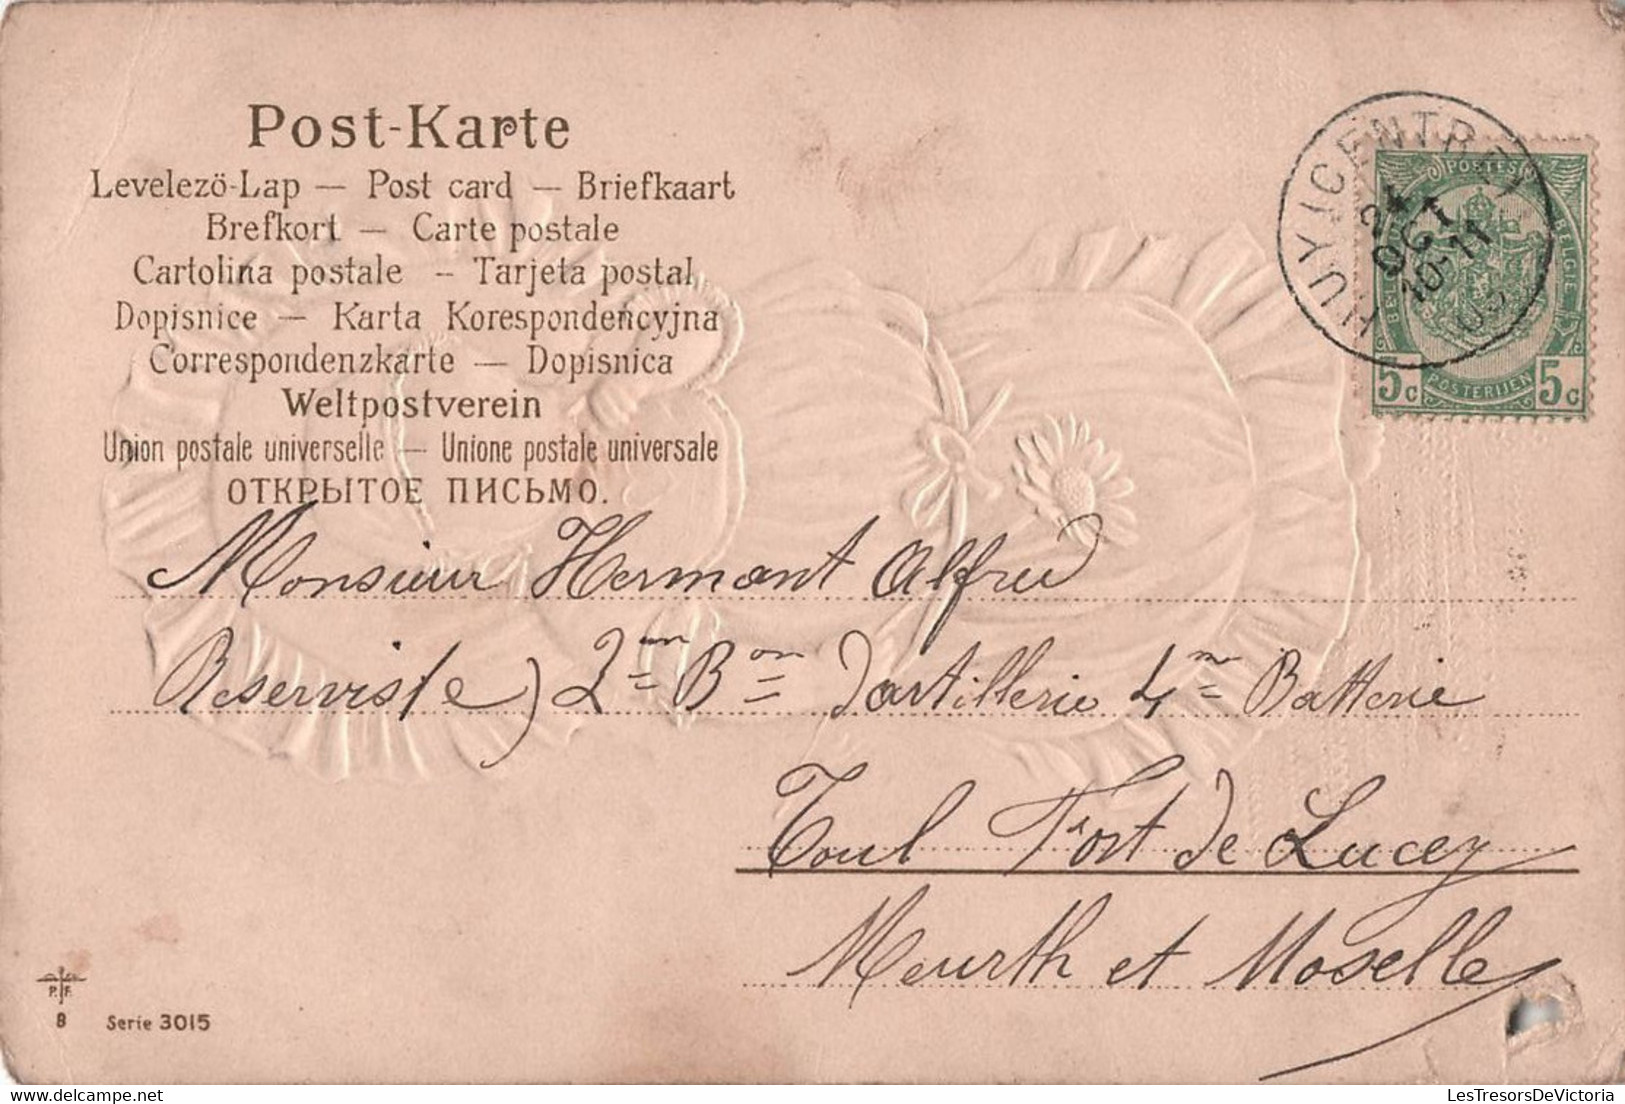 Post-Karte
Levelezö-Lap — Post card — Briefkaart
Brefkort — Carte postale
Cartolina postale – Tarjeta postal
Dopisnice — Karta Korespondencyjna
Correspondenzkarte — Dopisnica
Weltpostverein
Union postale universelle — Unione postale universale
ОТКРЫТОЕ ПИСЬМО.
HUY (CENTRE)
24
OCT
10-11
05
POSTES
BELGIQUE
BELGIE
5c POSTERIJEN 5c
Monsieur Hermant Alfred
Reserviste) 2me Bon Dartillerie 4me Batterie
Toul Fort de Lucey
Meurth et Moselle
P.F.
8 Serie 3015
LesTresorsDeVictoria